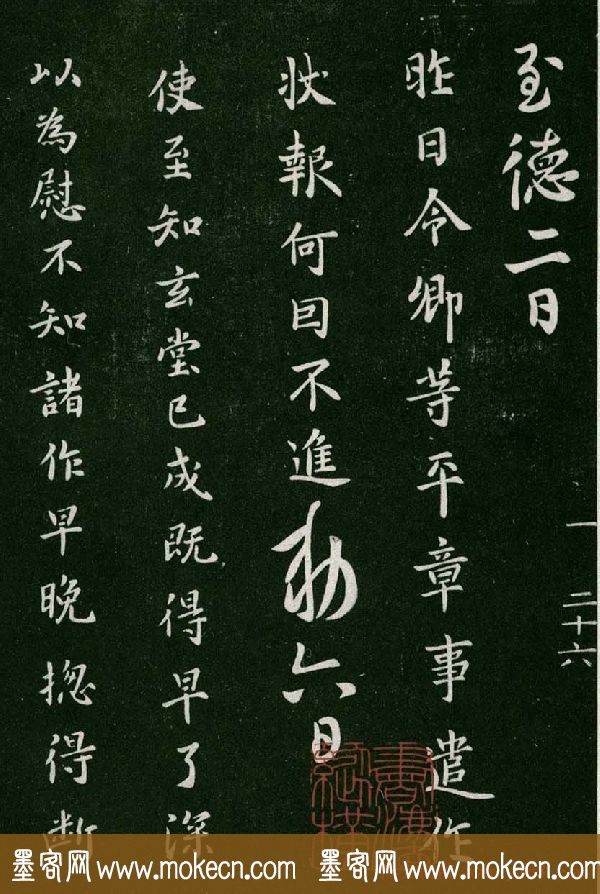 至德二日
昨日令卿等平章事遣作
狀報何因不進敕六日
使至知玄堂已成既得早了深
以為慰不知諸作早晚揔得斷
一 二十六
墨客网 www.mokecn.com 墨客网 www.mokecn.com